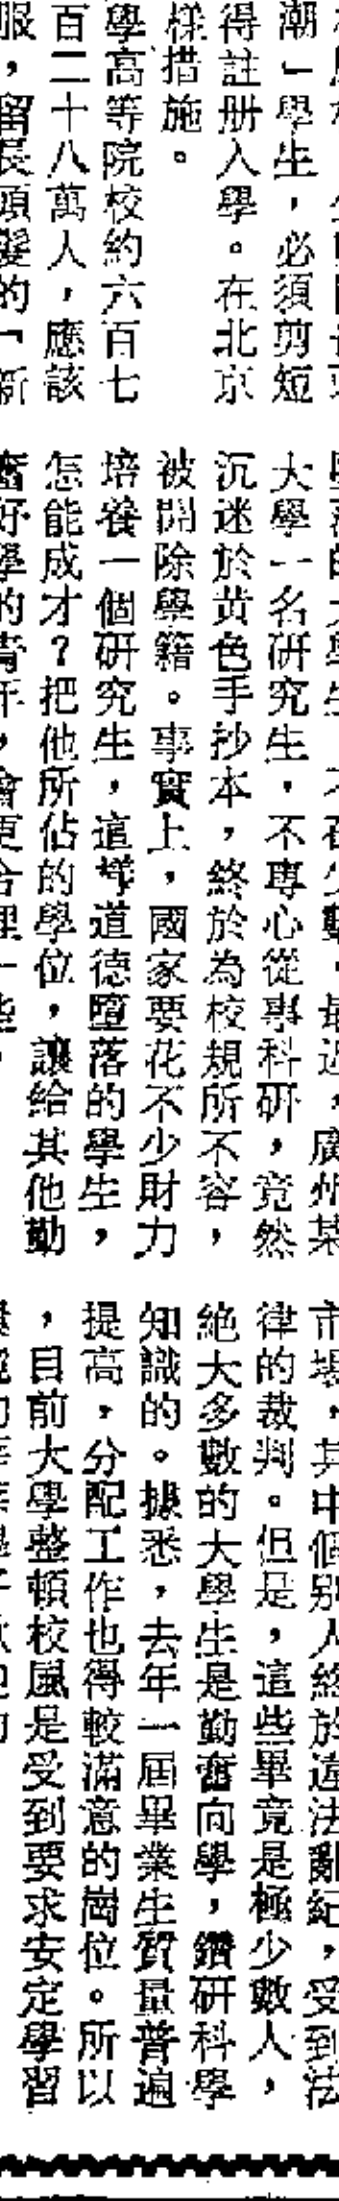 潮﹂學生，必須剪短
得註册入學。在北京
樣措施。
學高等院校約六百七
百二十八萬人，應該
服，留長頭髮的﹁新
大學一名研究生，不專心從事科研，竟然
沉迷於黄色手抄本，終於為校規所不容，
被開除學籍。事實上，國家要花不少財力
培養一個研究生，這樣道德墮落的學生，
怎能成才？把他所佔的學位，讓給其他勤
奮好學的青年，會更合理一些。
市場，其中個别人終於違法亂紀，受到法
律的裁判。但是，這些畢竟是極少數人，
絶大多數的大學生是勤奮向學，鑽研科學
知識的。據悉，去年一屆畢業生質量普遍
提高，分配工作也得較滿意的崗位。所以
，目前大學整頓校風是受到要求安定學習